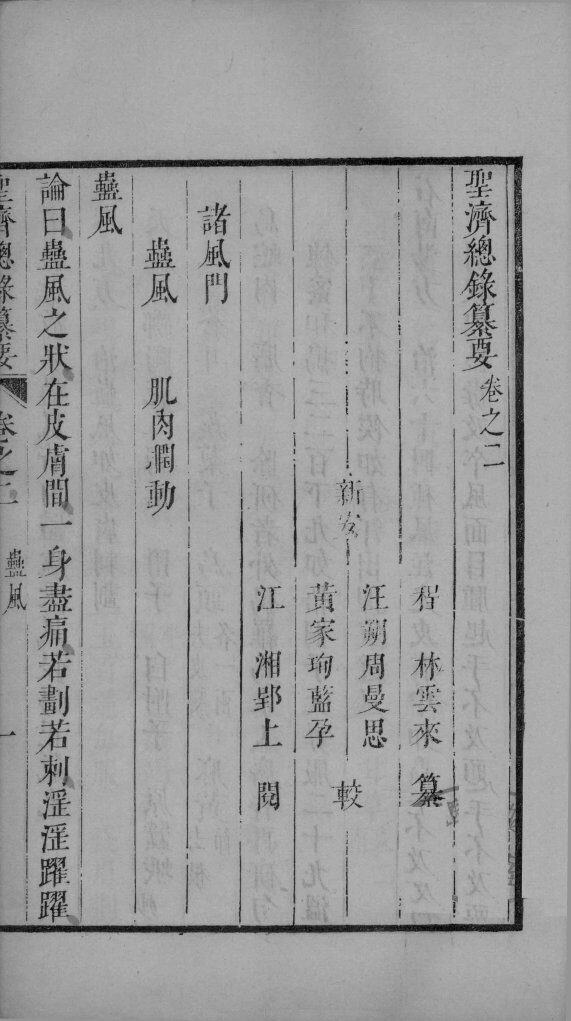 聖濟總錄纂要卷之二
程林雲來纂
汪朔周曼思
新安
較
黃家珣藍孕
江湘郢上閱
諸風門
蠱風 肌肉瞤動
蠱風
論曰蠱風之狀在皮膚間一身盡痛若劃若刺淫淫躍躍
聖濟總錄纂要 卷之二 蠱風 一